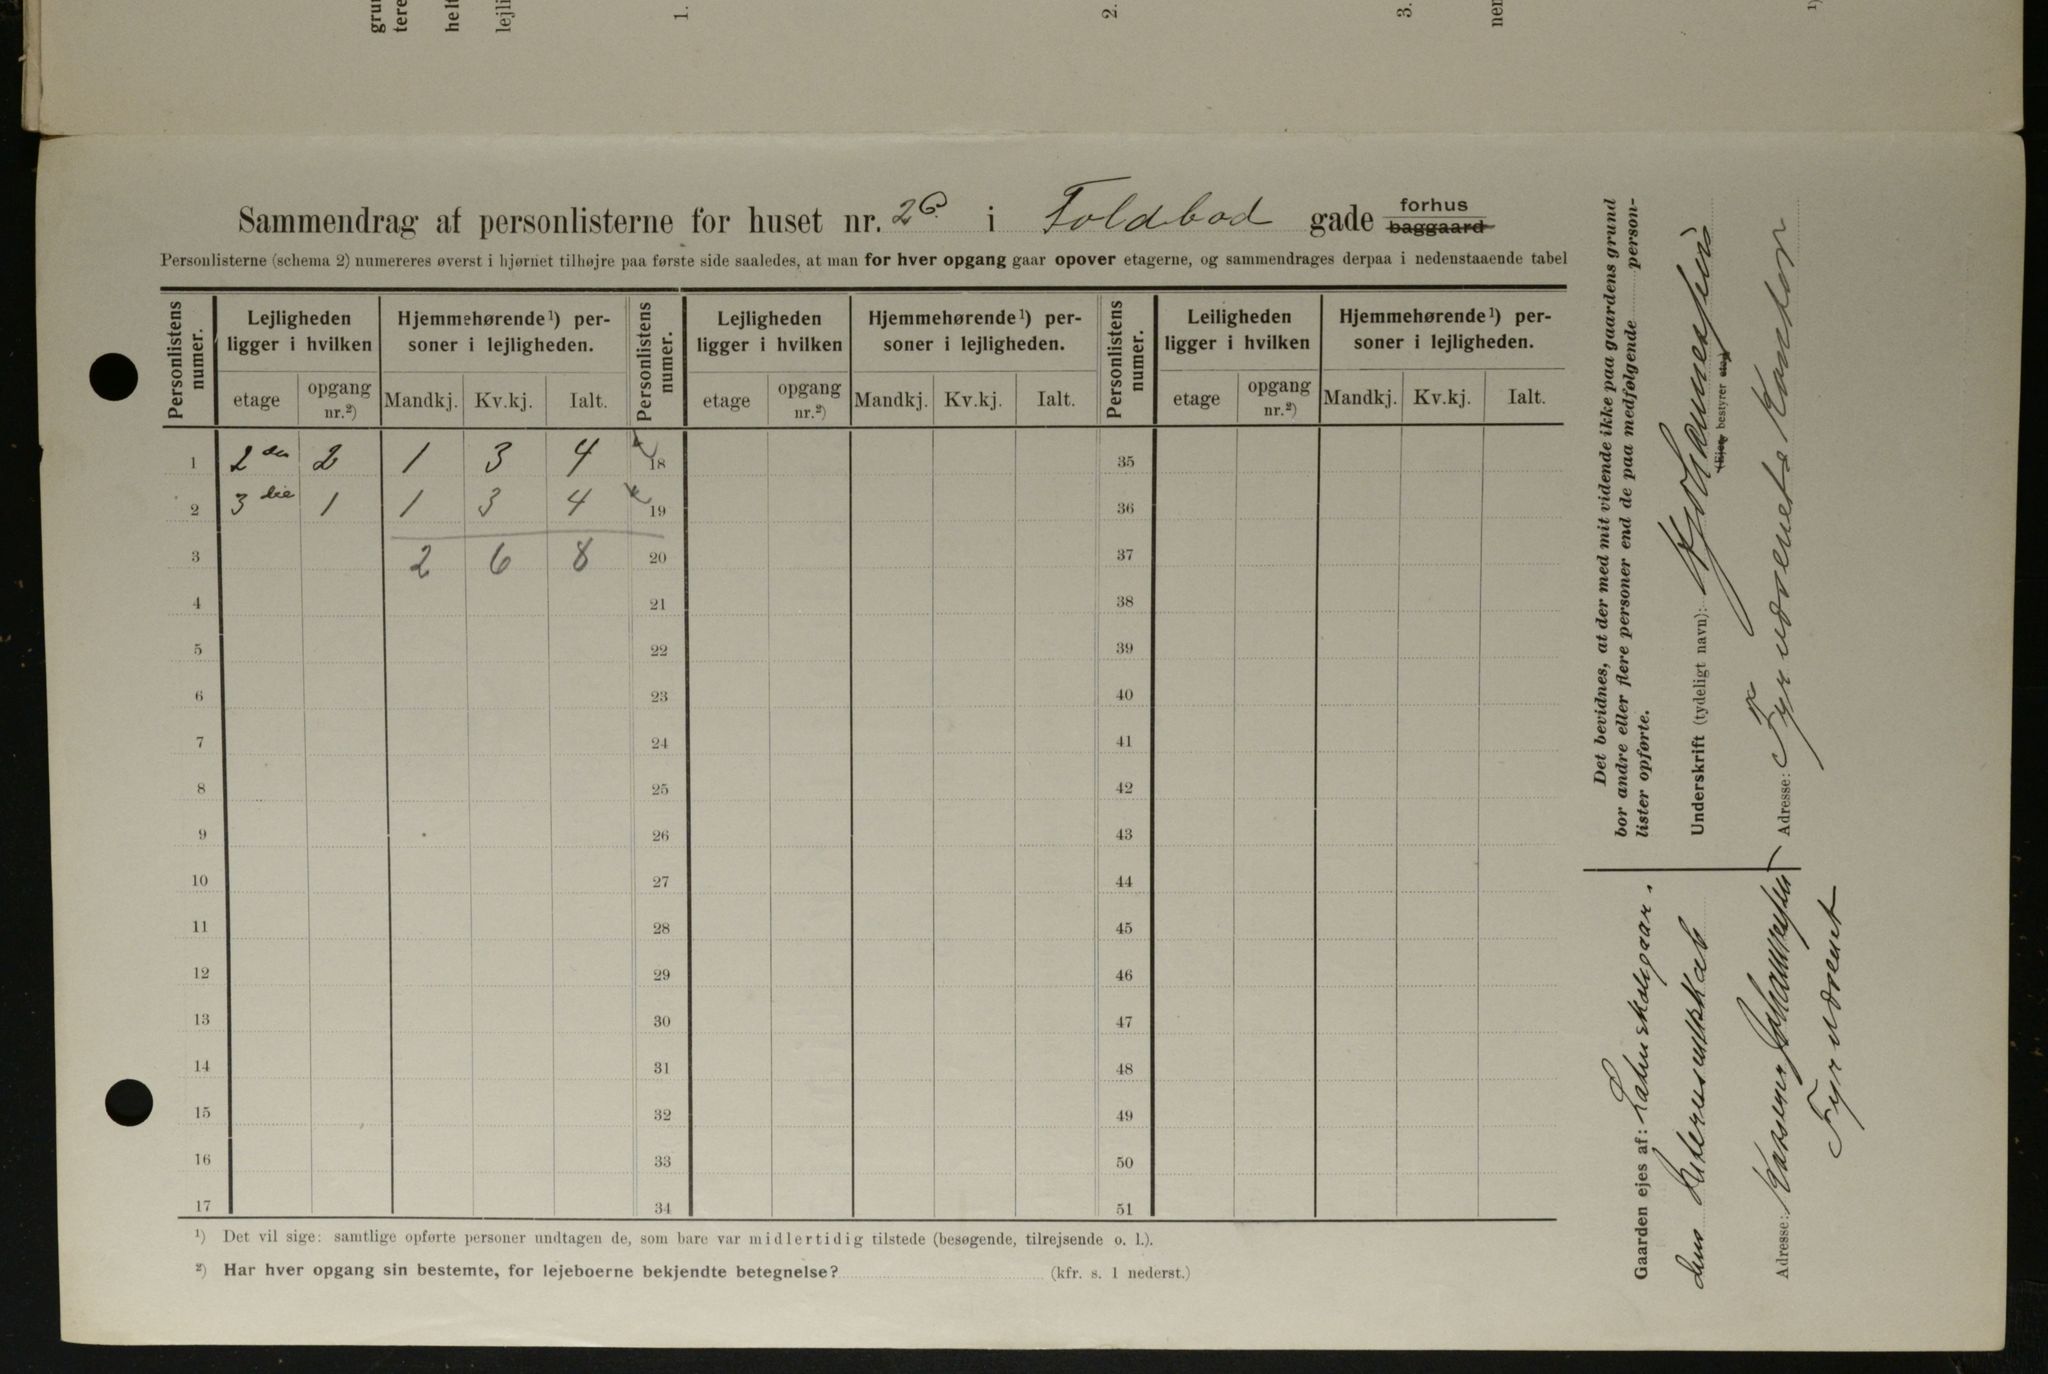 grun
tere
helt
lejli
1.
2.
3.
nem
1)
Sammendrag af personlisterne for huset nr. 2 i Toldbod gade forhus
baggaard
Personlisterne (schema 2) numereres øverst i hjørnet tilhøjre paa første side saaledes, at man for hver opgang gaar opover etagerne, og sammendrages derpaa i nedenstaaende tabel
Personlistens numer. Lejligheden ligger i hvilken Hjemmehørende¹) personer i lejligheden. Personlistens numer. Lejligheden ligger i hvilken Hjemmehørende¹) personer i lejligheden. Personlistens numer. Leiligheden ligger i hvilken Hjemmehørende¹) personer i lejligheden.
etage opgang nr.²) Mandkj. Kv.kj. Ialt. etage opgang nr.²) Mandkj. Kv.kj. Ialt. etage opgang nr.²) Mandkj. Kv.kj. Ialt.
1 2den 2 1 3 4 18 35
2 3die 1 1 3 4 19 36
3 2 6 8 20 37
4 21 38
5 22 39
6 23 40
7 24 41
8 25 42
9 26 43
10 27 44
11 28 45
12 29 46
13 30 47
14 31 48
15 32 49
16 33 50
17 34 51
¹) Det vil sige: samtlige opførte personer undtagen de, som bare var midlertidig tilstede (besøgende, tilrejsende o. l.).
²) Har hver opgang sin bestemte, for lejeboerne bekjendte betegnelse? (kfr. s. 1 nederst.)
Det bevidnes, at der med mit vidende ikke paa gaardens grund
bor andre eller flere personer end de paa medfølgende person-
lister opførte.
Underskrift (tydeligt navn): Johannessen
(Ejer, bestyrer etc.)
Adresse: Fyrvæsenets Kontor
Gaarden ejes af:
Interessentskab
Adresse: Kasserer Johannessen
Fyrvæsenet